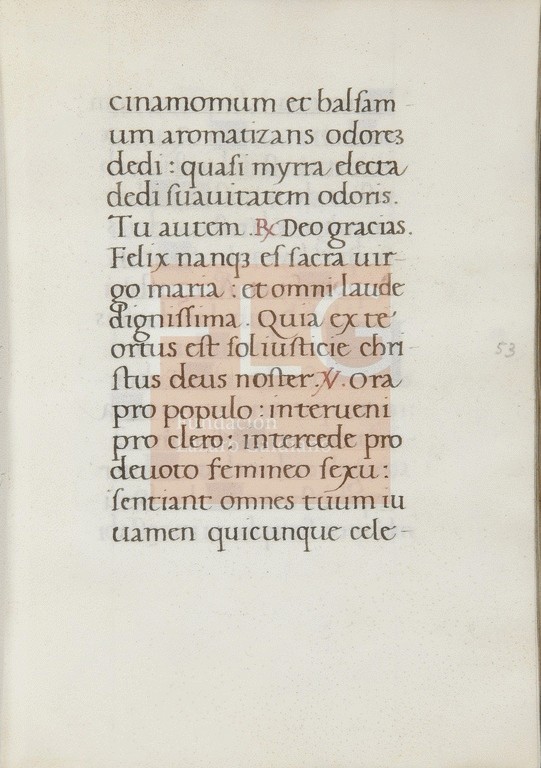 cinamomum et balsam-
um aromatizans odorez
dedi : quasi myrra electa
dedi suauitatem odoris.
Tu autem . ℟ Deo gracias.
Felix nanqꝫ es sacra uir-
go maria : et omni laude
dignissima . Quia ex te
ortus est sol iusticie chri
stus deus noster. ℣. Ora
pro populo : interueni
pro clero : intercede pro
deuoto femineo sexu :
sentiant omnes tuum iu
uamen quicunque cele-
53
FLG
Fundación
Lázaro Galdiano